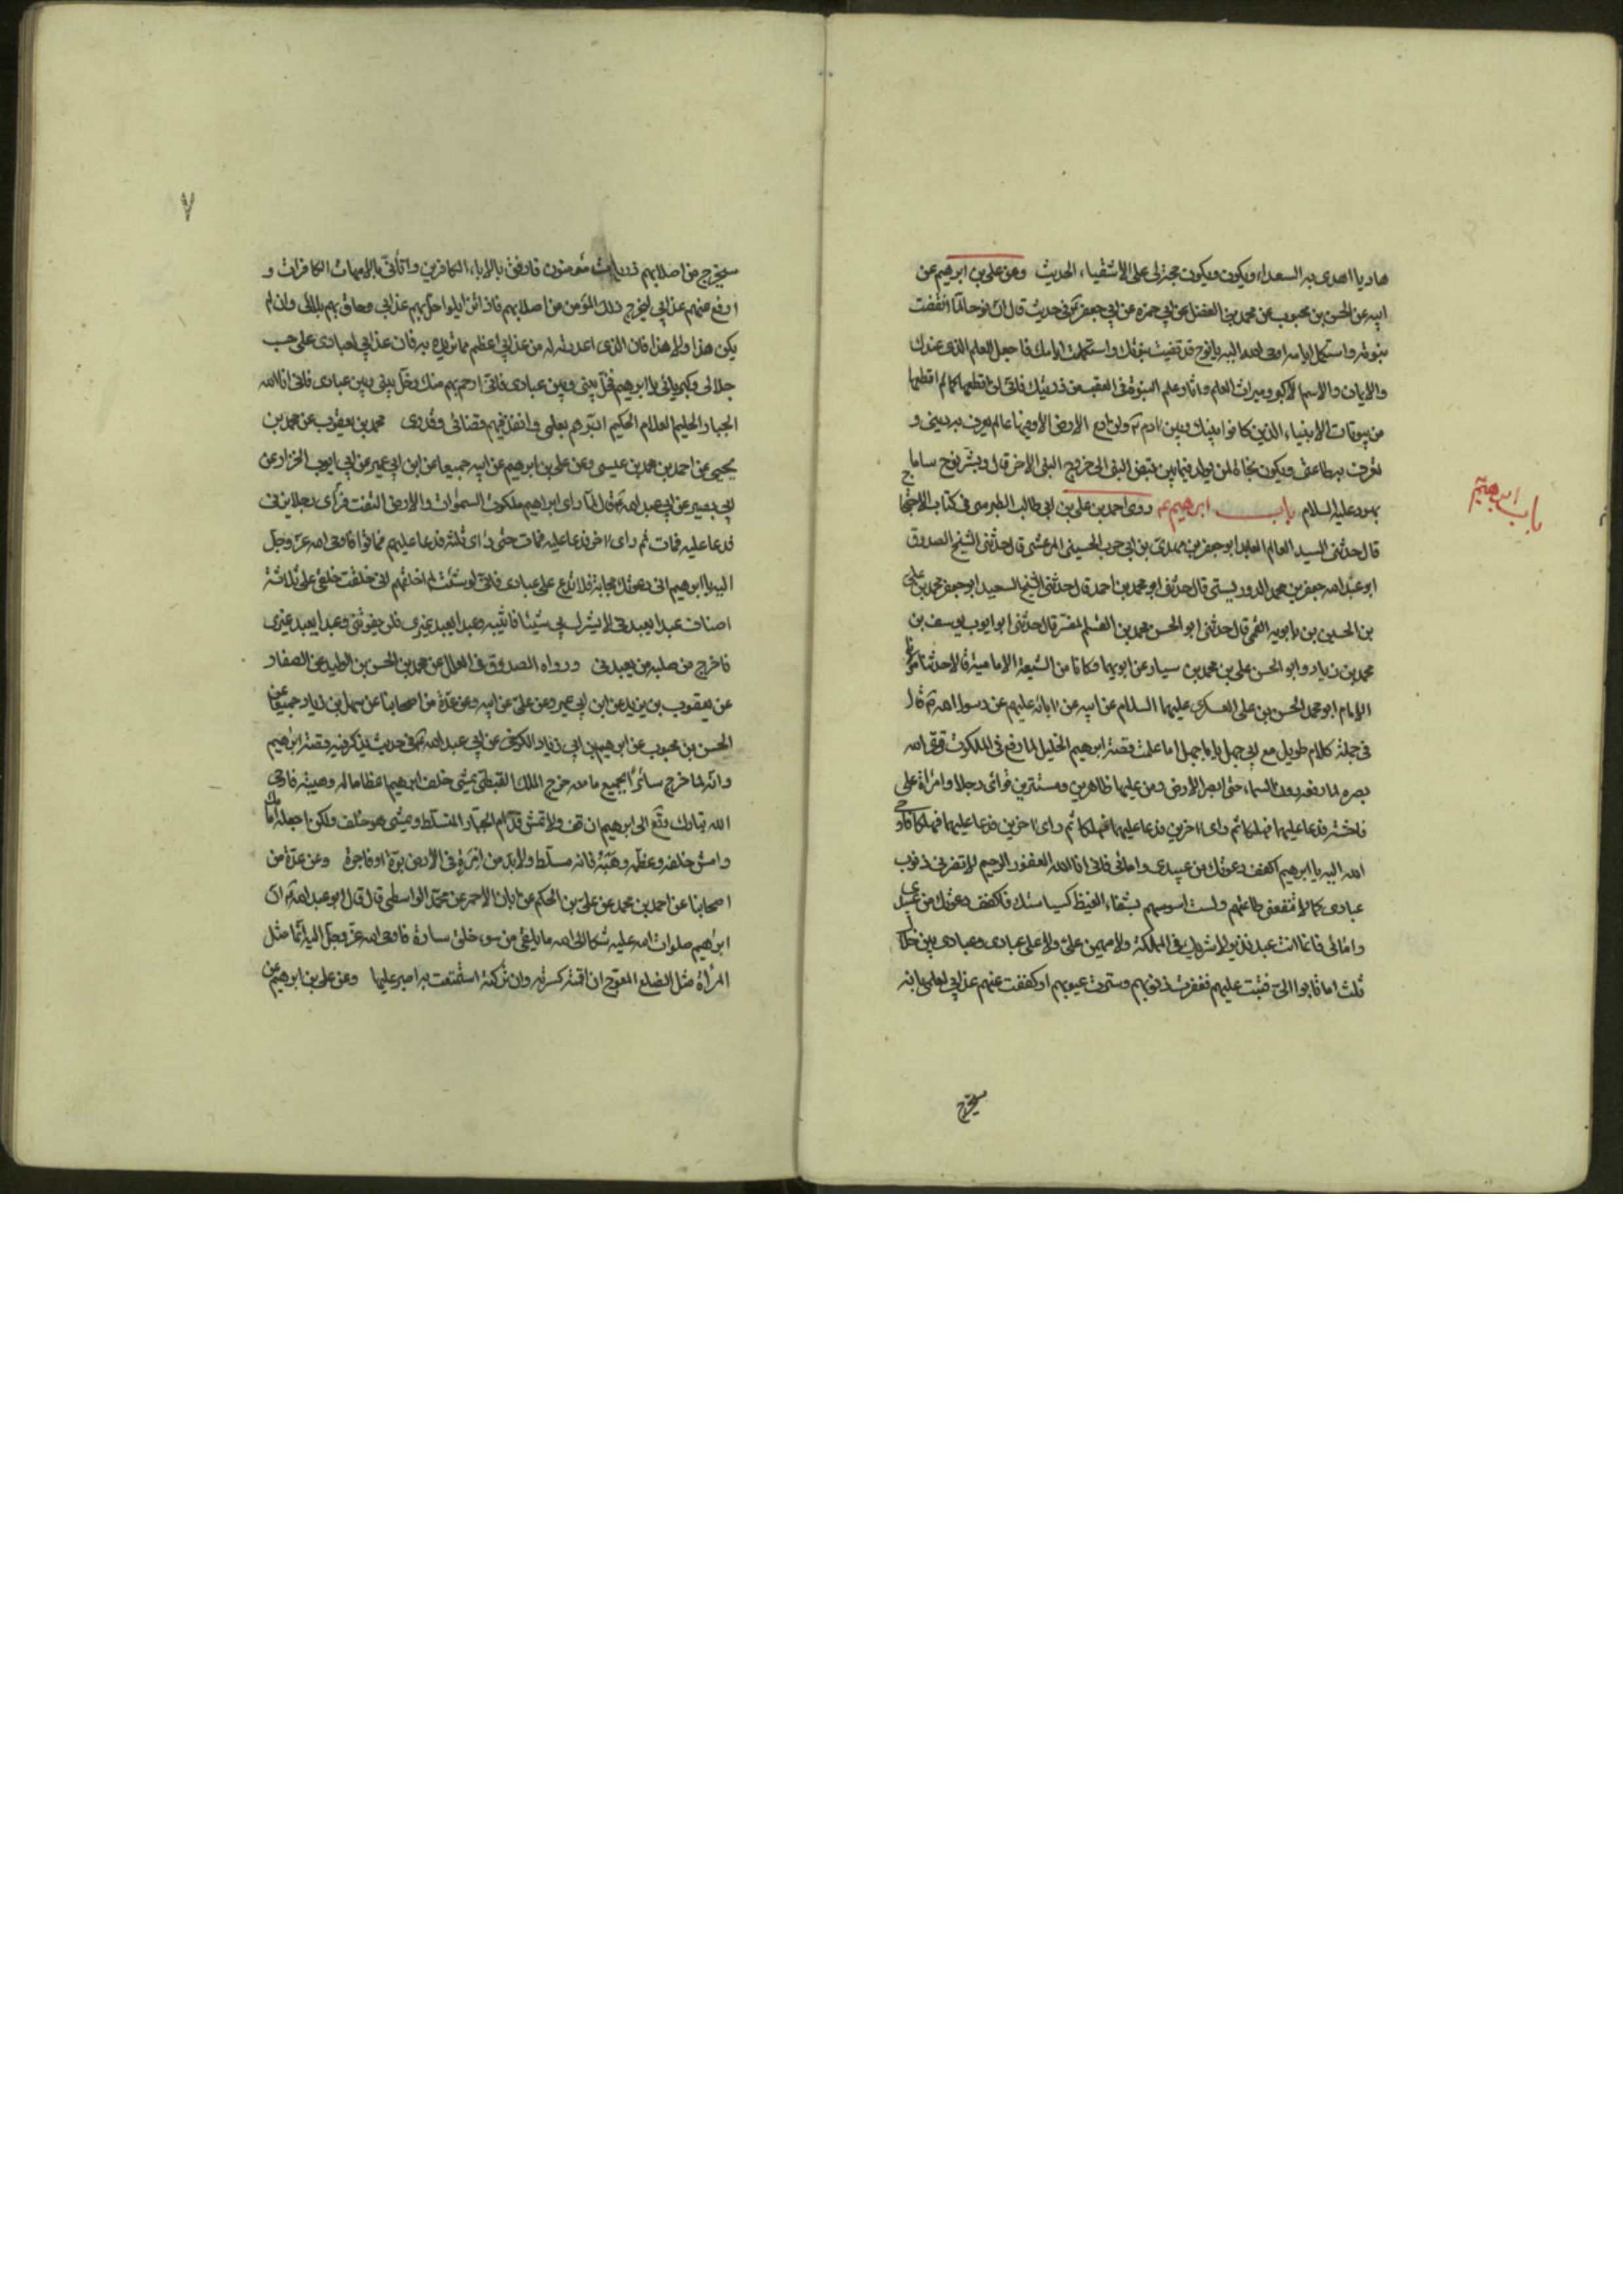 هاديا اهدى به السعداء ويكون ويكون حجة لى على الاشقياء الحديث وعن على بن ابرهيم عن
ابيه عن الحسن بن محبوب عن محمد بن الفضل عن ابى حمزه عن ابى جعفر ع فى حديث قال ان نوحا لما انقضت
نبوته واستكمل ايامه اوحى الله اليه يا نوح قد قضيت نبوتك واستكملت ايامك فاجعل العلم الذى عندك
والايمان والاسم الاكبر وميراث العلم واثار علم النبوة فى العقب من ذريتك فانى لن اقطعها كما لم اقطعها
من بيوتات الانبياء الذين كانوا بينك وبين ادم ع ولن ادع الارض الا وفيها عالم يعرف به دينى و
تعرف به طاعتى ويكون نجاة لمن يولد فيما بين قبض النبى الى خروج النبى الاخر قال وبشر نوح ساما
بهود عليه السلام باب ابرهيم ع روى احمد بن على بن ابى طالب الطبرسى فى كتاب الاحتجاج
باب ابرهيم ع
قال حدثنى السيد العالم العابد ابو جعفر مهدى بن ابى حرب الحسينى المرعشى قال حدثنى الشيخ الصدوق
ابو عبد الله جعفر بن محمد الدوريستى قال حدثنى ابو محمد بن احمد قال حدثنى الشيخ السعيد ابو جعفر محمد بن على
بن الحسين بن بابويه القمى قال حدثنى ابو الحسن محمد بن القسم المفسر قال حدثنى ابو ايوب يوسف بن
محمد بن زياد وابو الحسن على بن محمد بن سيار عن ابويهما وكانا من الشيعة الامامية قالا حدثنا مولانا
الامام ابو محمد الحسن بن على العسكرى عليهما السلام عن ابيه عن ابائه عليهم عن رسول الله ص قال
فى جملة كلام طويل مع ابى جهل يا ابا جهل اما علمت قصة ابرهيم الخليل لما رفع فى الملكوت قوى الله
بصره لما رفعه دون السماء حتى ابصر الارض ومن عليها ظاهرين ومستترين فرأى رجلا وامرأة على
فاحشة فدعا عليهما فهلكا ثم راى اخرين فدعا عليهما فهلكا ثم راى اخرين فدعا عليهما فهلكا فاوحى
الله اليه يا ابرهيم اكفف دعوتك عن عبيدى وامائى فانى انا الله الغفور الرحيم لا تضرنى ذنوب
عبادى كما لا تنفعنى طاعتهم ولست اسوسهم بشفاء الغيظ كسياستك فاكفف دعوتك عن عبيدى
وامائى فانما انت عبد نذير لا شريك فى المملكة ولا مهيمن على ولا على عبادى وعبادى بين خلال
ثلث اما تابوا الى فتبت عليهم فغفرت ذنوبهم وسترت عيوبهم او كففت عنهم عذابى لعلمى بانه
سيخرج
٧
سيخرج من اصلابهم ذريات مؤمنون فارفق بالاباء الكافرين واتانى بالامهات الكافرات و
ارفع عنهم عذابى ليخرج ذلك المؤمن من اصلابهم فاذا تزايلوا حل بهم عذابى وحاق بهم بلائى وان لم
يكن هذا ولا هذا فان الذى اعددته له من عذابى اعظم مما تريده به فان عذابى لعبادى على حسب
جلالى وكبريائى يا ابرهيم فخل بينى وبين عبادى فانى ارحم بهم منك وخل بينى وبين عبادى فانى انا الله
الجبار الحليم العلام الحكيم ادبرهم بعلمى وانفذ فيهم قضائى وقدرى محمد بن يعقوب عن محمد بن
يحيى عن احمد بن محمد بن عيسى وعن على بن ابرهيم عن ابيه جميعا عن ابن ابى عمير عن ابى ايوب الخزاز عن
ابى بصير عن ابى عبد الله ع قال لما راى ابراهيم ملكوت السموات والارض التفت فرأى رجلا يزنى
فدعا عليه فمات ثم راى اخر فدعا عليه فمات حتى راى ثلثة فدعا عليهم فماتوا فاوحى الله عز وجل
اليه يا ابرهيم ان دعوتك مجابة فلا تدع على عبادى فانى لو شئت لم اخلقهم انى خلقت خلقى على ثلاثة
اصناف عبدا يعبدنى لا يشرك بى شيئا فاثيبه وعبدا يعبد غيرى فلن يفوتنى وعبدا يعبد غيرى
فاخرج من صلبه من يعبدنى ورواه الصدوق فى العلل عن محمد بن الحسن بن الوليد عن الصفار
عن يعقوب بن يزيد عن ابن ابى عمير وعن على عن ابيه وعن عدة من اصحابنا عن سهل بن زياد جميعا عن
الحسن بن محبوب عن ابرهيم بن ابى زياد الكرخى عن ابى عبد الله ع فى حديث يذكر فيه قصة ابرهيم
وانه لما خرج سائرا بجميع ما معه خرج الملك القبطى يمشى خلف ابرهيم اعظاما له وهيبة فاوحى
الله تبارك وتع الى ابرهيم ان قف ولا تمش قدام الجبار المتسلط ويمشى هو خلفك ولكن اجعله امامك
وامش خلفه وعظمه وهبه فانه مسلط ولابد من امرة فى الارض برة او فاجرة وعن عدة من
اصحابنا عن احمد بن محمد عن على بن الحكم عن ابان الاحمر عن محمد الواسطى قال قال ابو عبد الله ع ان
ابرهيم صلوات الله عليه شكا الى الله ما يلقى من سوء خلق سارة فاوحى الله عز وجل اليه انما مثل
المرأة مثل الضلع المعوج ان اقمته كسرته وان تركته استمتعت به اصبر عليها وعن على بن ابرهيم عن